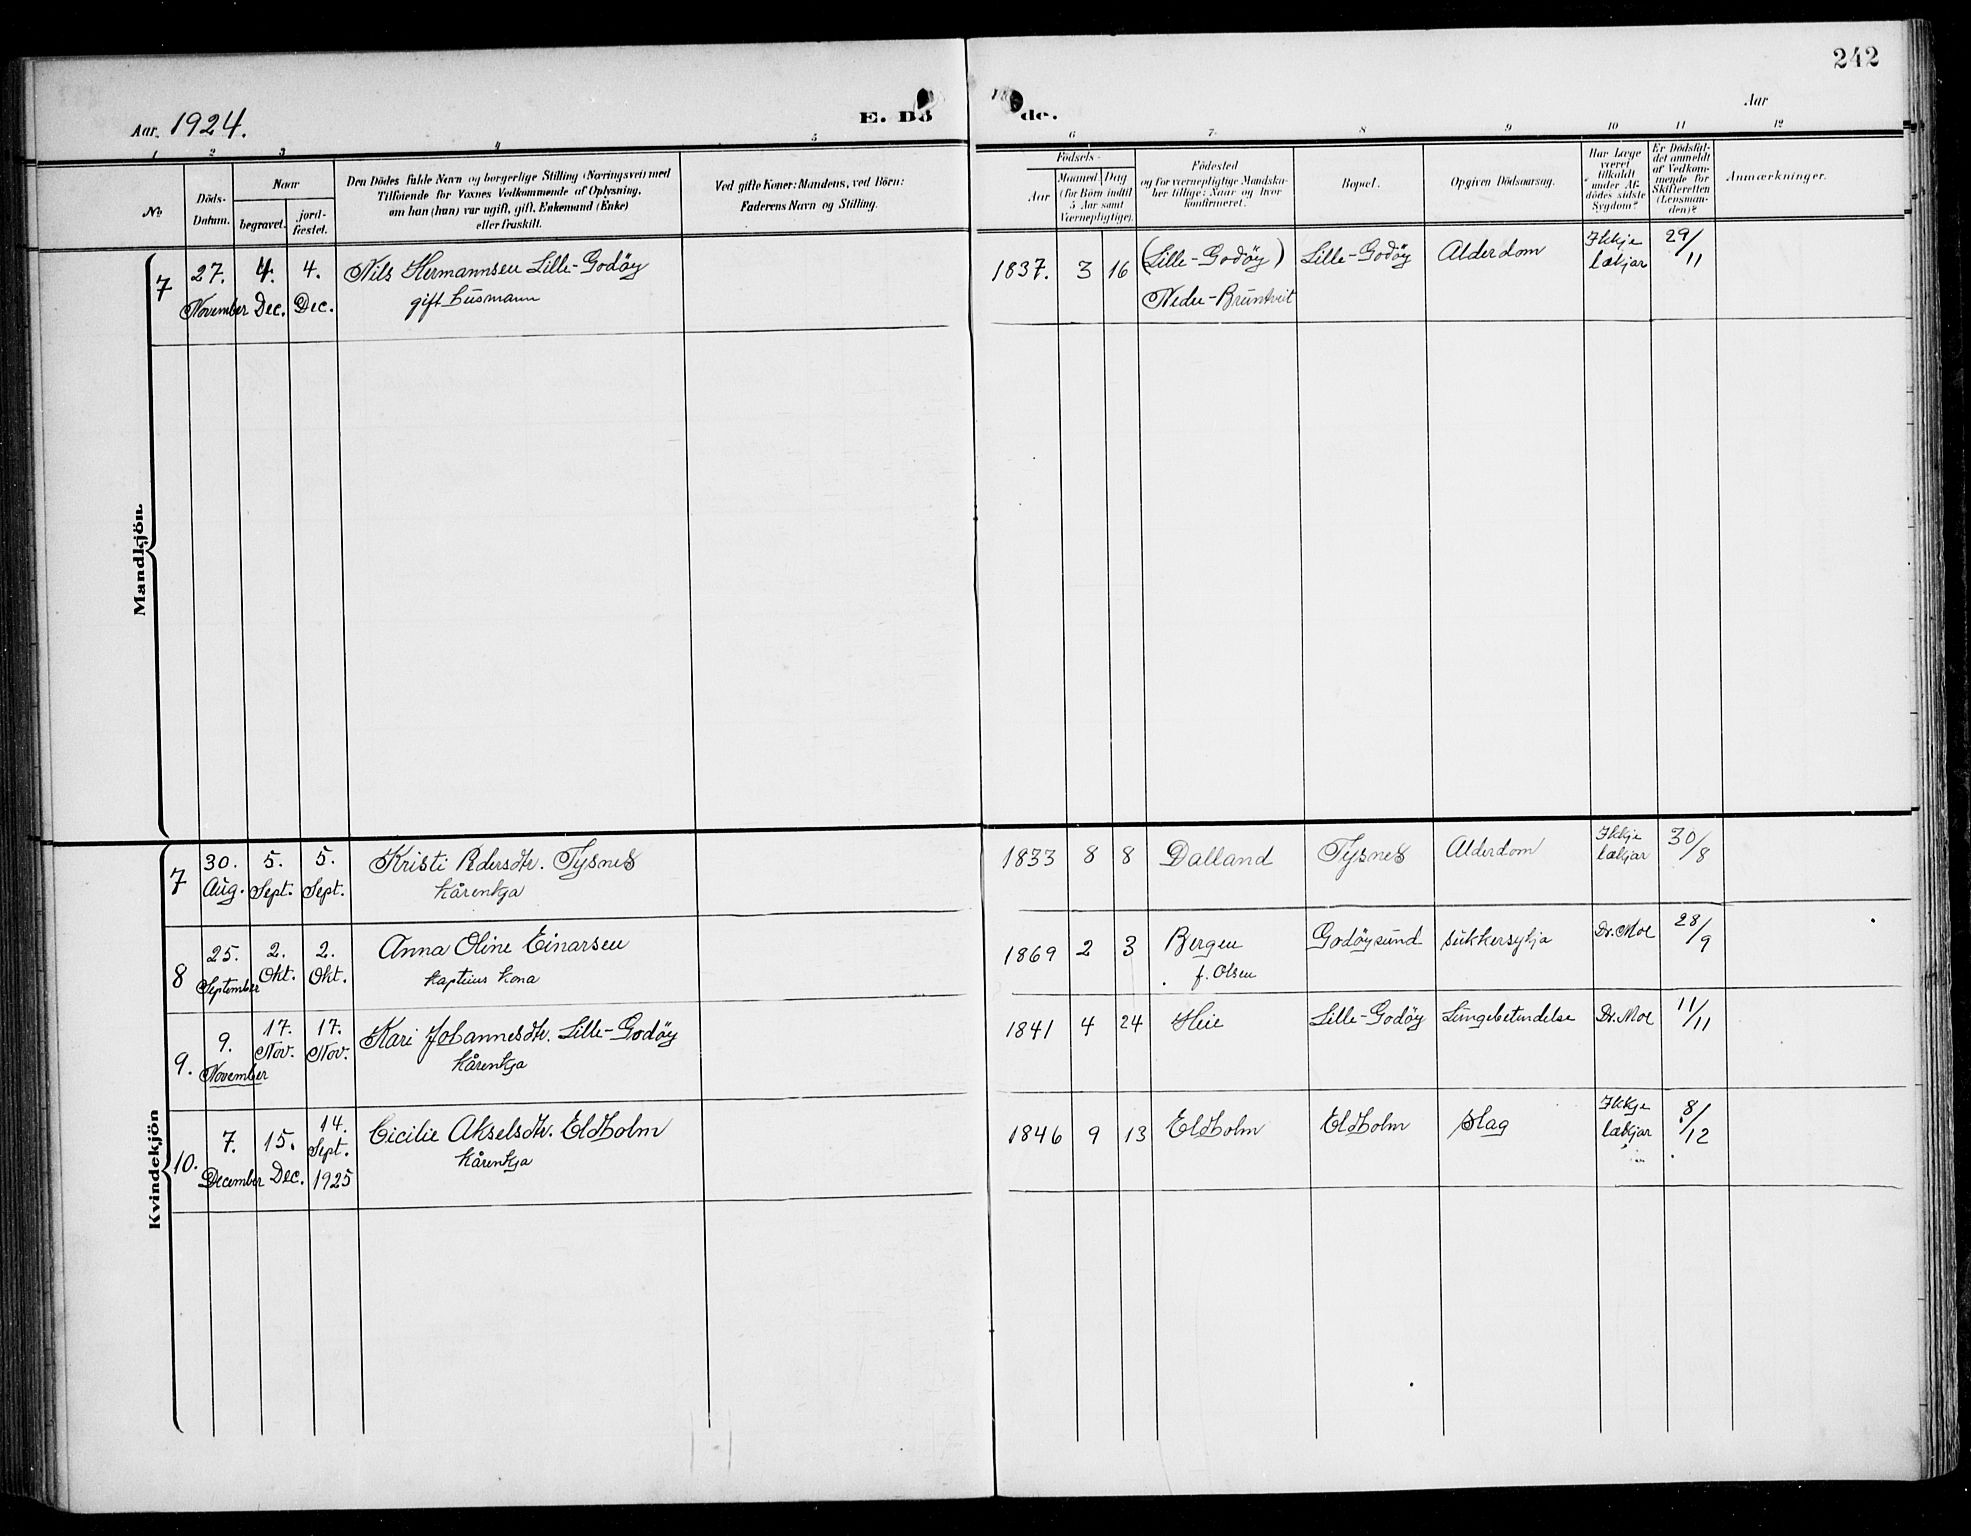 242
Aar. 1924.
E. Dö
de.
Aar
1 2 3 4 5
6 7 8 9 10 11 12
No
Döds-Datum.
Naar
begravet.
jord-fæstet.
Den Dödes fulde Navn og borgerlige Stilling (Næringsvei) med
Tilföiende for Voxnes Vedkommende af Oplysning,
om han (hun) var ugift, gift, Enkemand (Enke)
eller fraskilt.
Ved gifte Koner: Mandens, ved Börn:
Faderens Navn og Stilling.
Födsels-
Aar
Maaned
Dag
(for Börn indtil
5 Aar samt
Værnepligtige).
Födested
og for værnepligtige Mandska-
ber tillige: Naar og hvor
konfirmeret.
Bopæl.
Opgiven Dödsaarsag.
Har Læge
været
tilkaldt
under Af-
dödes sidste
Sygdom?
Er Dödsfal-
det anmeldt
af Vedkom-
mende for
Skifteretten
(Lensman-
den)?
Anmærkninger.
Mandkjön.
7 27. 4. 4. Nils Hermannsen Lille-Godøy 1837. 3 16 (Lille-Godøy) Lille-Godøy Alderdom Ikkje 29/11
November Dec. Dec. gift husmann Nedre-Bruntveit lækjar
Kvindekjön
7 30. 5. 5. Kristi Pedersdtr. Tysnes 1833 8 8 Dalland Tysnes Alderdom Ikkje lækjar 30/8
Aug. Sept. Sept. kårenkja
8 25. 2. 2. Anna Oline Einarsen 1869 2 3 Bergen Godøysund sukkersykja Dr. Moe 28/9
September Okt. Okt. kapteins kona f. Olsen
9. 9. 17. 17. Kari Johannesdtr. Lille-Godøy 1841 4 24 Heie Lille-Godøy Lungebetendelse Dr. Moe 11/11
November Nov. Nov. kårenkja
10. 7. 15. 14. Cicilie Akselsdtr. Eldholm 1846 9 13 Eldholm Eldholm Slag Ikkje lækjar 8/12
December Dec. Sept. 1925 kårenkja